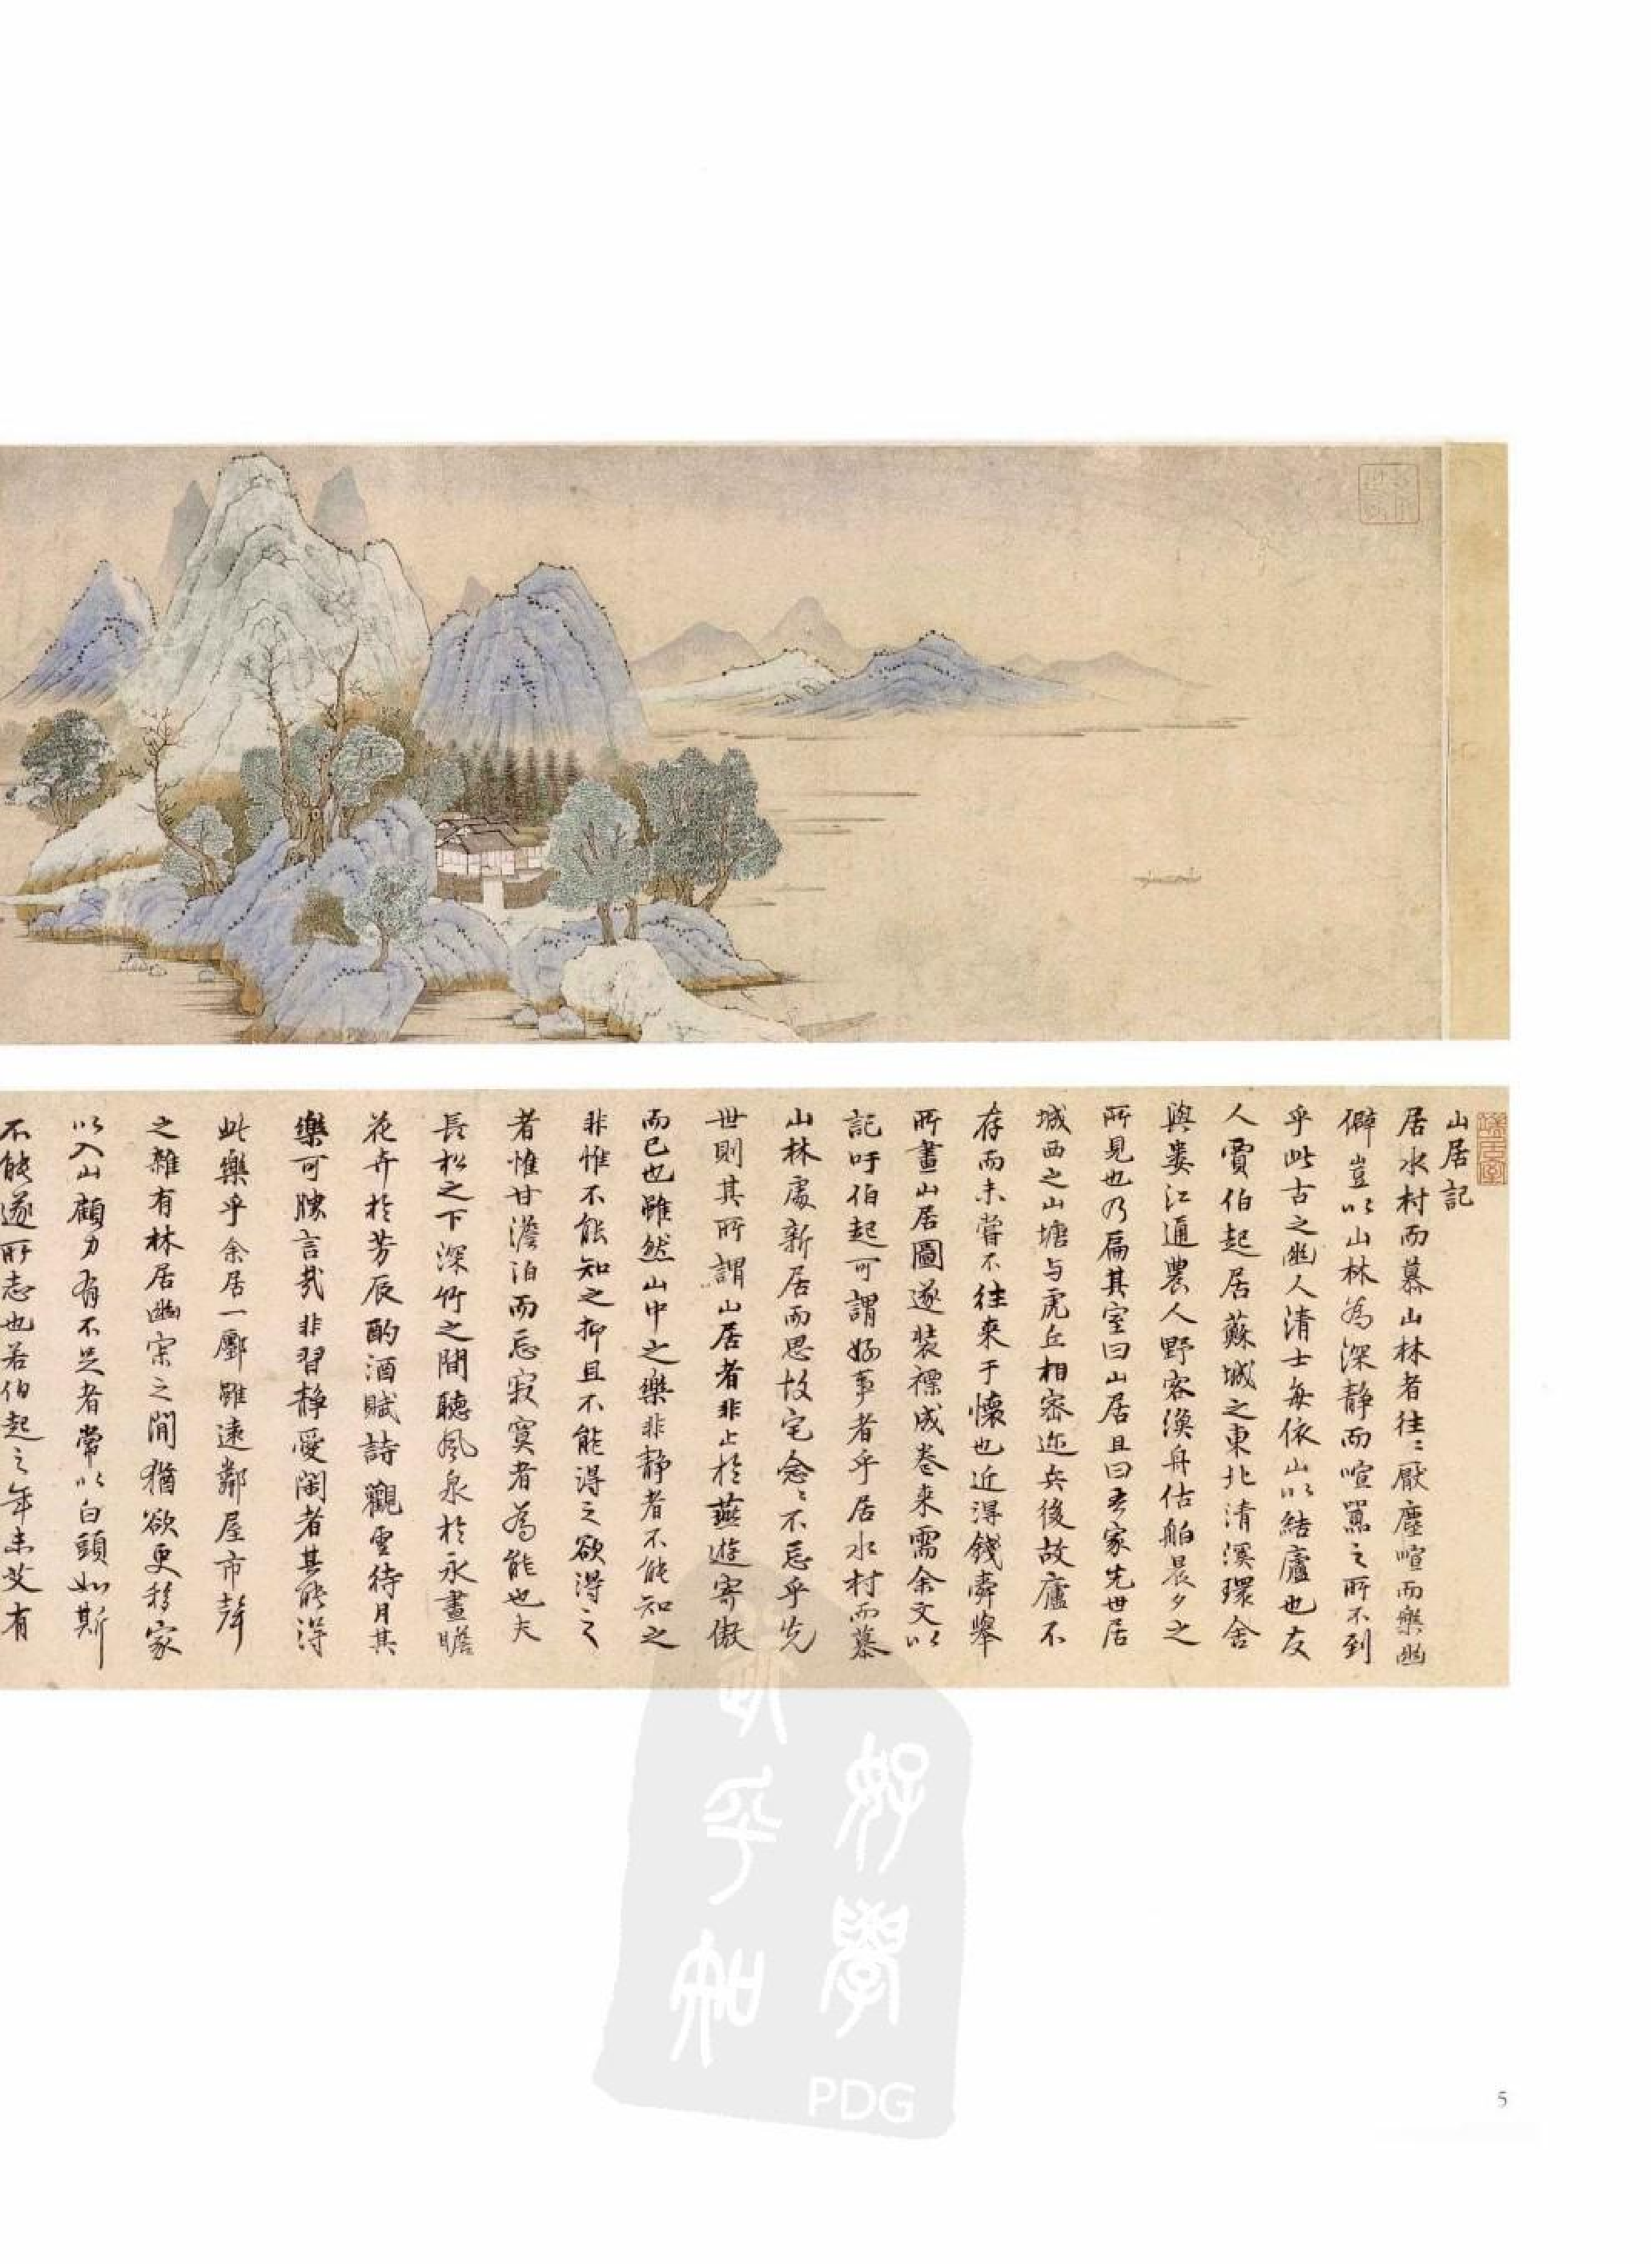 山居記
居水村而慕山林者往〻厭塵喧而樂幽
僻豈以山林為深靜而喧囂之所不到
乎此古之幽人清士每依山以結廬也友
人賈伯起居蘇城之東北清溪環舍
與婁江通農人野客漁舟估舶晨夕之
所見也乃扁其室曰山居且曰吾家先世居
城西之山塘与虎丘相密迩兵後故廬不
存而未嘗不往來于懷也近得錢舜舉
所畫山居圖遂裝褾成卷来需余文以
記吁伯起可謂好事者乎居水村而慕
山林處新居而思故宅念〻不忘乎先
世則其所謂山居者非止於燕遊寄傲
而已也雖然山中之樂非靜者不能知之
非惟不能知之抑且不能得之欲得之
者惟甘澹泊而忘寂寞者為能也夫
長松之下深竹之間聽風泉於永晝瞻
花卉於芳辰酌酒賦詩觀雲待月其
樂可勝言哉非習靜愛閑者其能得
此樂乎余居一廛雖遠鄰屋市聲
之雜有林居幽宗之閒猶欲更移家
以入山顧力有不足者常以白頭如斯
不能遂所志也若伯起之年未艾有
好學
PDG
5